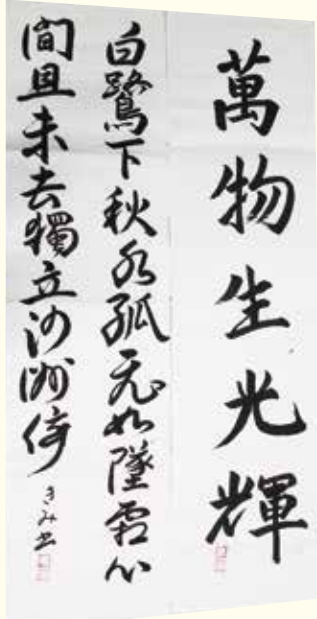 萬物生光輝
白鷺下秋水孤飛如墜霜心
間且未去獨立沙洲傍
きみ書